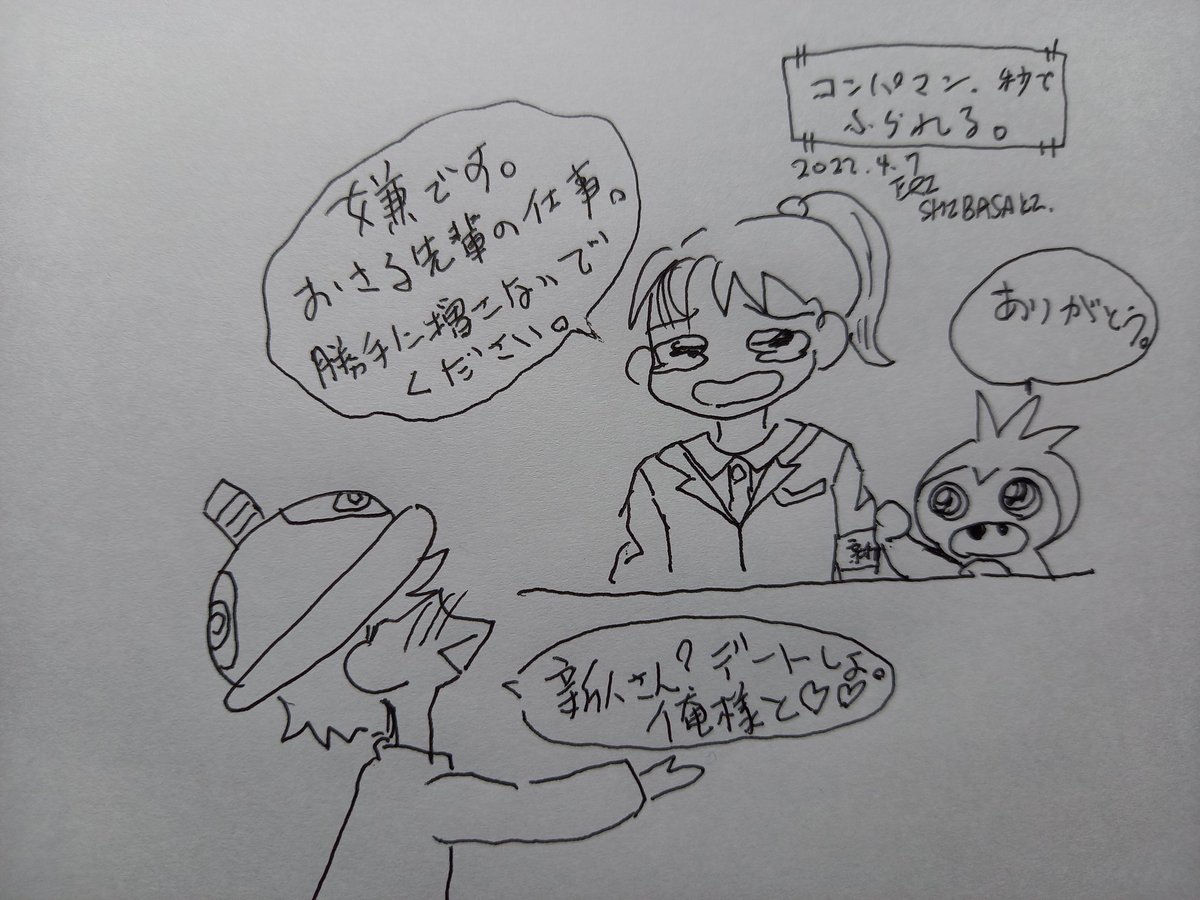 コンパマン、秒で
ふられる。
2022.4.7
ERI
SHIBASAKI.
嫌です。
おさる先輩の仕事。
勝手に増こないで
ください。
ありがとう。
新
新人さん?デートしよ。
俺様と♡♡